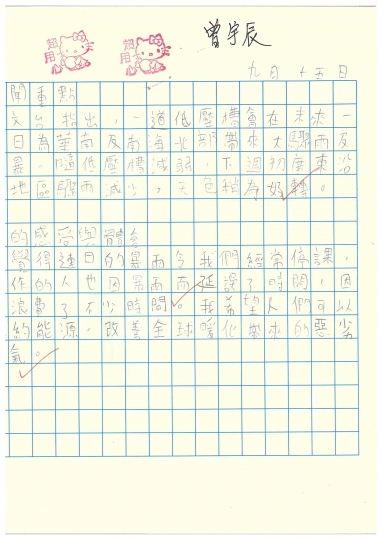 超用心 超用心 曾宇辰
九月十五日
聞重點
文台指出，一道低壓槽會在未來一
日為華南及南海北部帶來大驟雨及
暴。隨低壓槽減弱，下週初廣東沿
地區驟雨減少，天色稍為好轉。
的感受與體會
覺得連日的暴雨令我們經常停課，
作的人也因暴雨而延誤了時間，因
浪費了不少時間。我希望人們可以
約能源，改善全球暖化帶來的惡劣
氣。